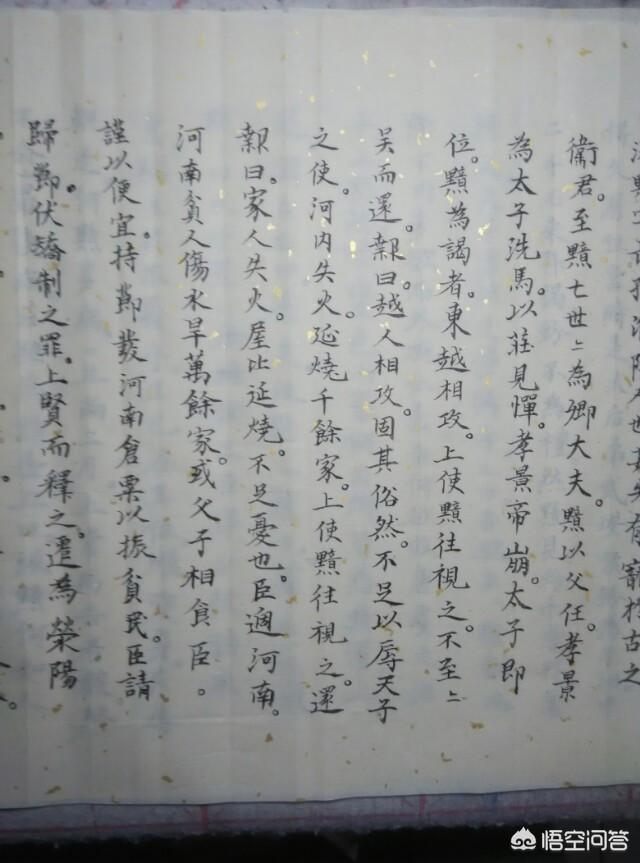 其先有寵於古之
衞君。至黯七世〻為卿大夫。黯以父任。孝景
為太子洗馬。以莊見憚。孝景帝崩。太子即
位。黯為謁者。東越相攻。上使黯往視之。不至〻
吴而還。報曰。越人相攻。固其俗然。不足以辱天子
之使。河内失火。延燒千餘家。上使黯往視之。還
報曰。家人失火。屋比延燒。不足憂也。臣過河南。
河南貧人傷水旱萬餘家。或父子相食臣。
謹以便宜。持節發河南倉粟以振貧民。臣請
歸節。伏矯制之罪。上賢而釋之。遷為滎陽
悟空问答